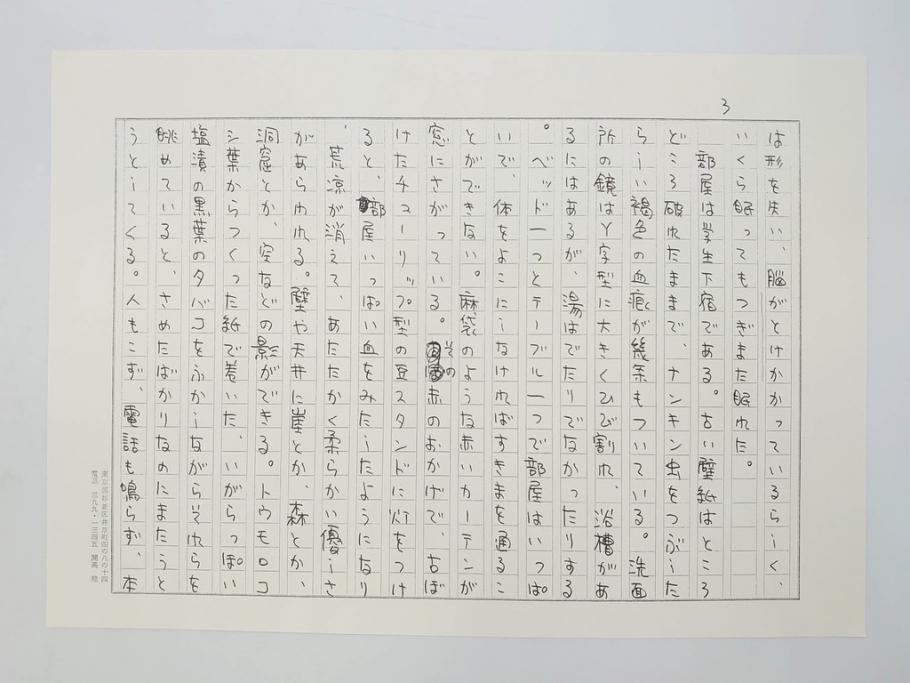 3
は形を失い、脳がとけかかっているらしく、
いくら眠ってもつぎまた眠れた。
部屋は学生下宿である。古い壁紙はところ
どころ破れたままで、ナンキン虫をつぶした
らしい褐色の血痕が幾条もついている。洗面
所の鏡はY字型に大きくひび割れ、浴槽があ
るにはあるが、湯はでたりでなかったりする
。ベッド一つとテーブル一つで部屋はいっぱ
いで、体をよこにしなければすきまを通るこ
とができない。麻袋のような赤いカーテンが
窓にさがっている。その赤のおかげで、古ぼ
けたチューリップ型の豆スタンドに灯をつけ
ると、部屋いっぱい血をみたしたようになり
、荒涼が消えて、あたたかく柔らかい優しさ
があらわれる。壁や天井に崖とか、森とか、
洞窟とか、空などの影ができる。トウモロコ
シ葉からつくった紙で巻いた、いがらっぽい
塩漬の黒葉のタバコをふかしながらそれらを
眺めていると、さめたばかりなのにまたうと
うとしてくる。人もこず、電話も鳴らず、本
東京都杉並区井草町四の八の十四
電話 三九九・一三四五 開高 健